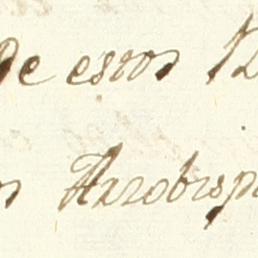 de estos
Arzobisp